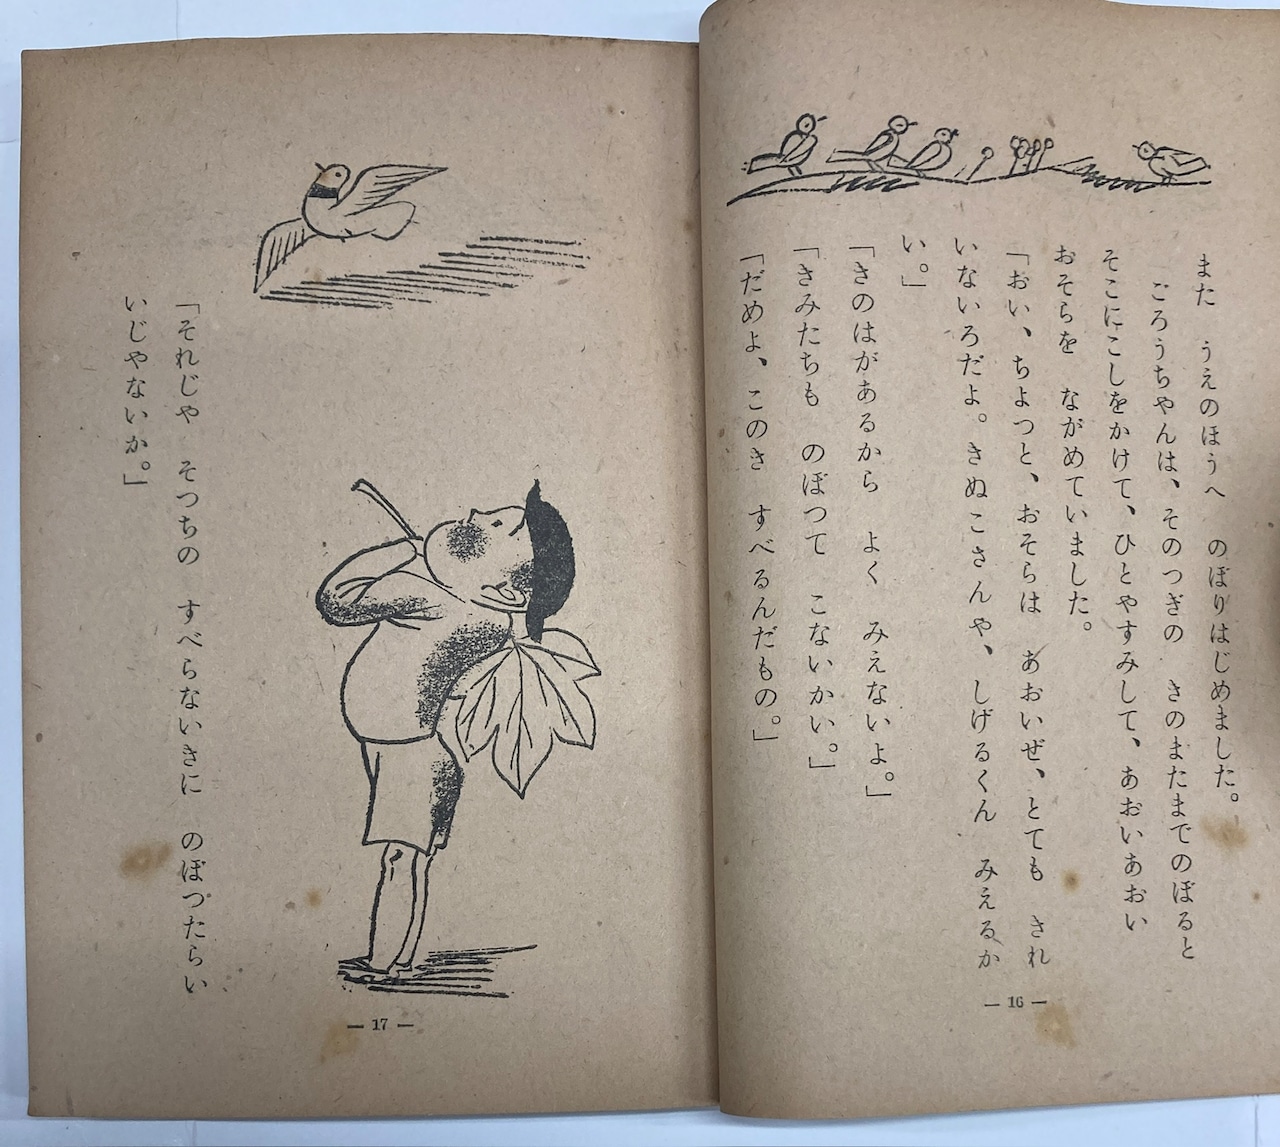 また　うえのほうへ　のぼりはじめました。
ごろうちゃんは、そのつぎの　きのまたまでのぼると
そこにこしをかけて、ひとやすみして、あおいあおい
おそらを　ながめていました。
「おい、ちよっと、おそらは　あおいぜ、とても　きれ
いないろだよ。きぬこさんや、しげるくん　みえるか
い。」
「きのはがあるから　よく　みえないよ。」
「きみたちも　のぼつて　こないかい。」
「だめよ、このき　すべるんだもの。」
— 16 —
「それじや　そつちの　すべらないきに　のぼつたらい
いじやないか。」
— 17 —